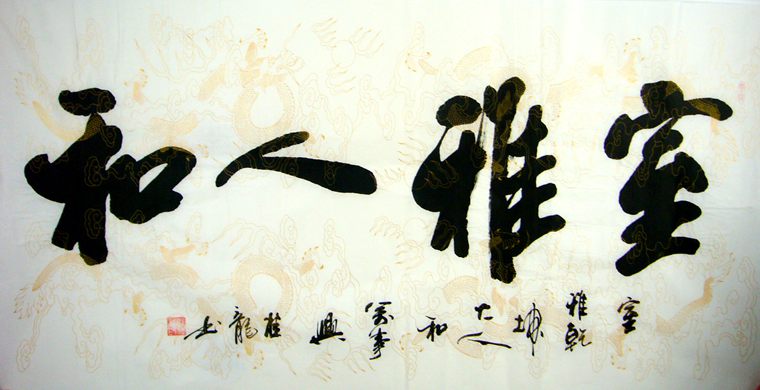 室雅人和
室雅乾坤大人和萬事興桂龍书